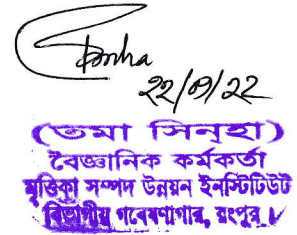 ২২/০৯/২২
(তমা সিন্‌হা)
বৈজ্ঞানিক কর্মকর্তা
মৃত্তিকা সম্পদ উন্নয়ন ইনস্টিটিউট
বিভাগীয় গবেষণাগার, রংপুর।